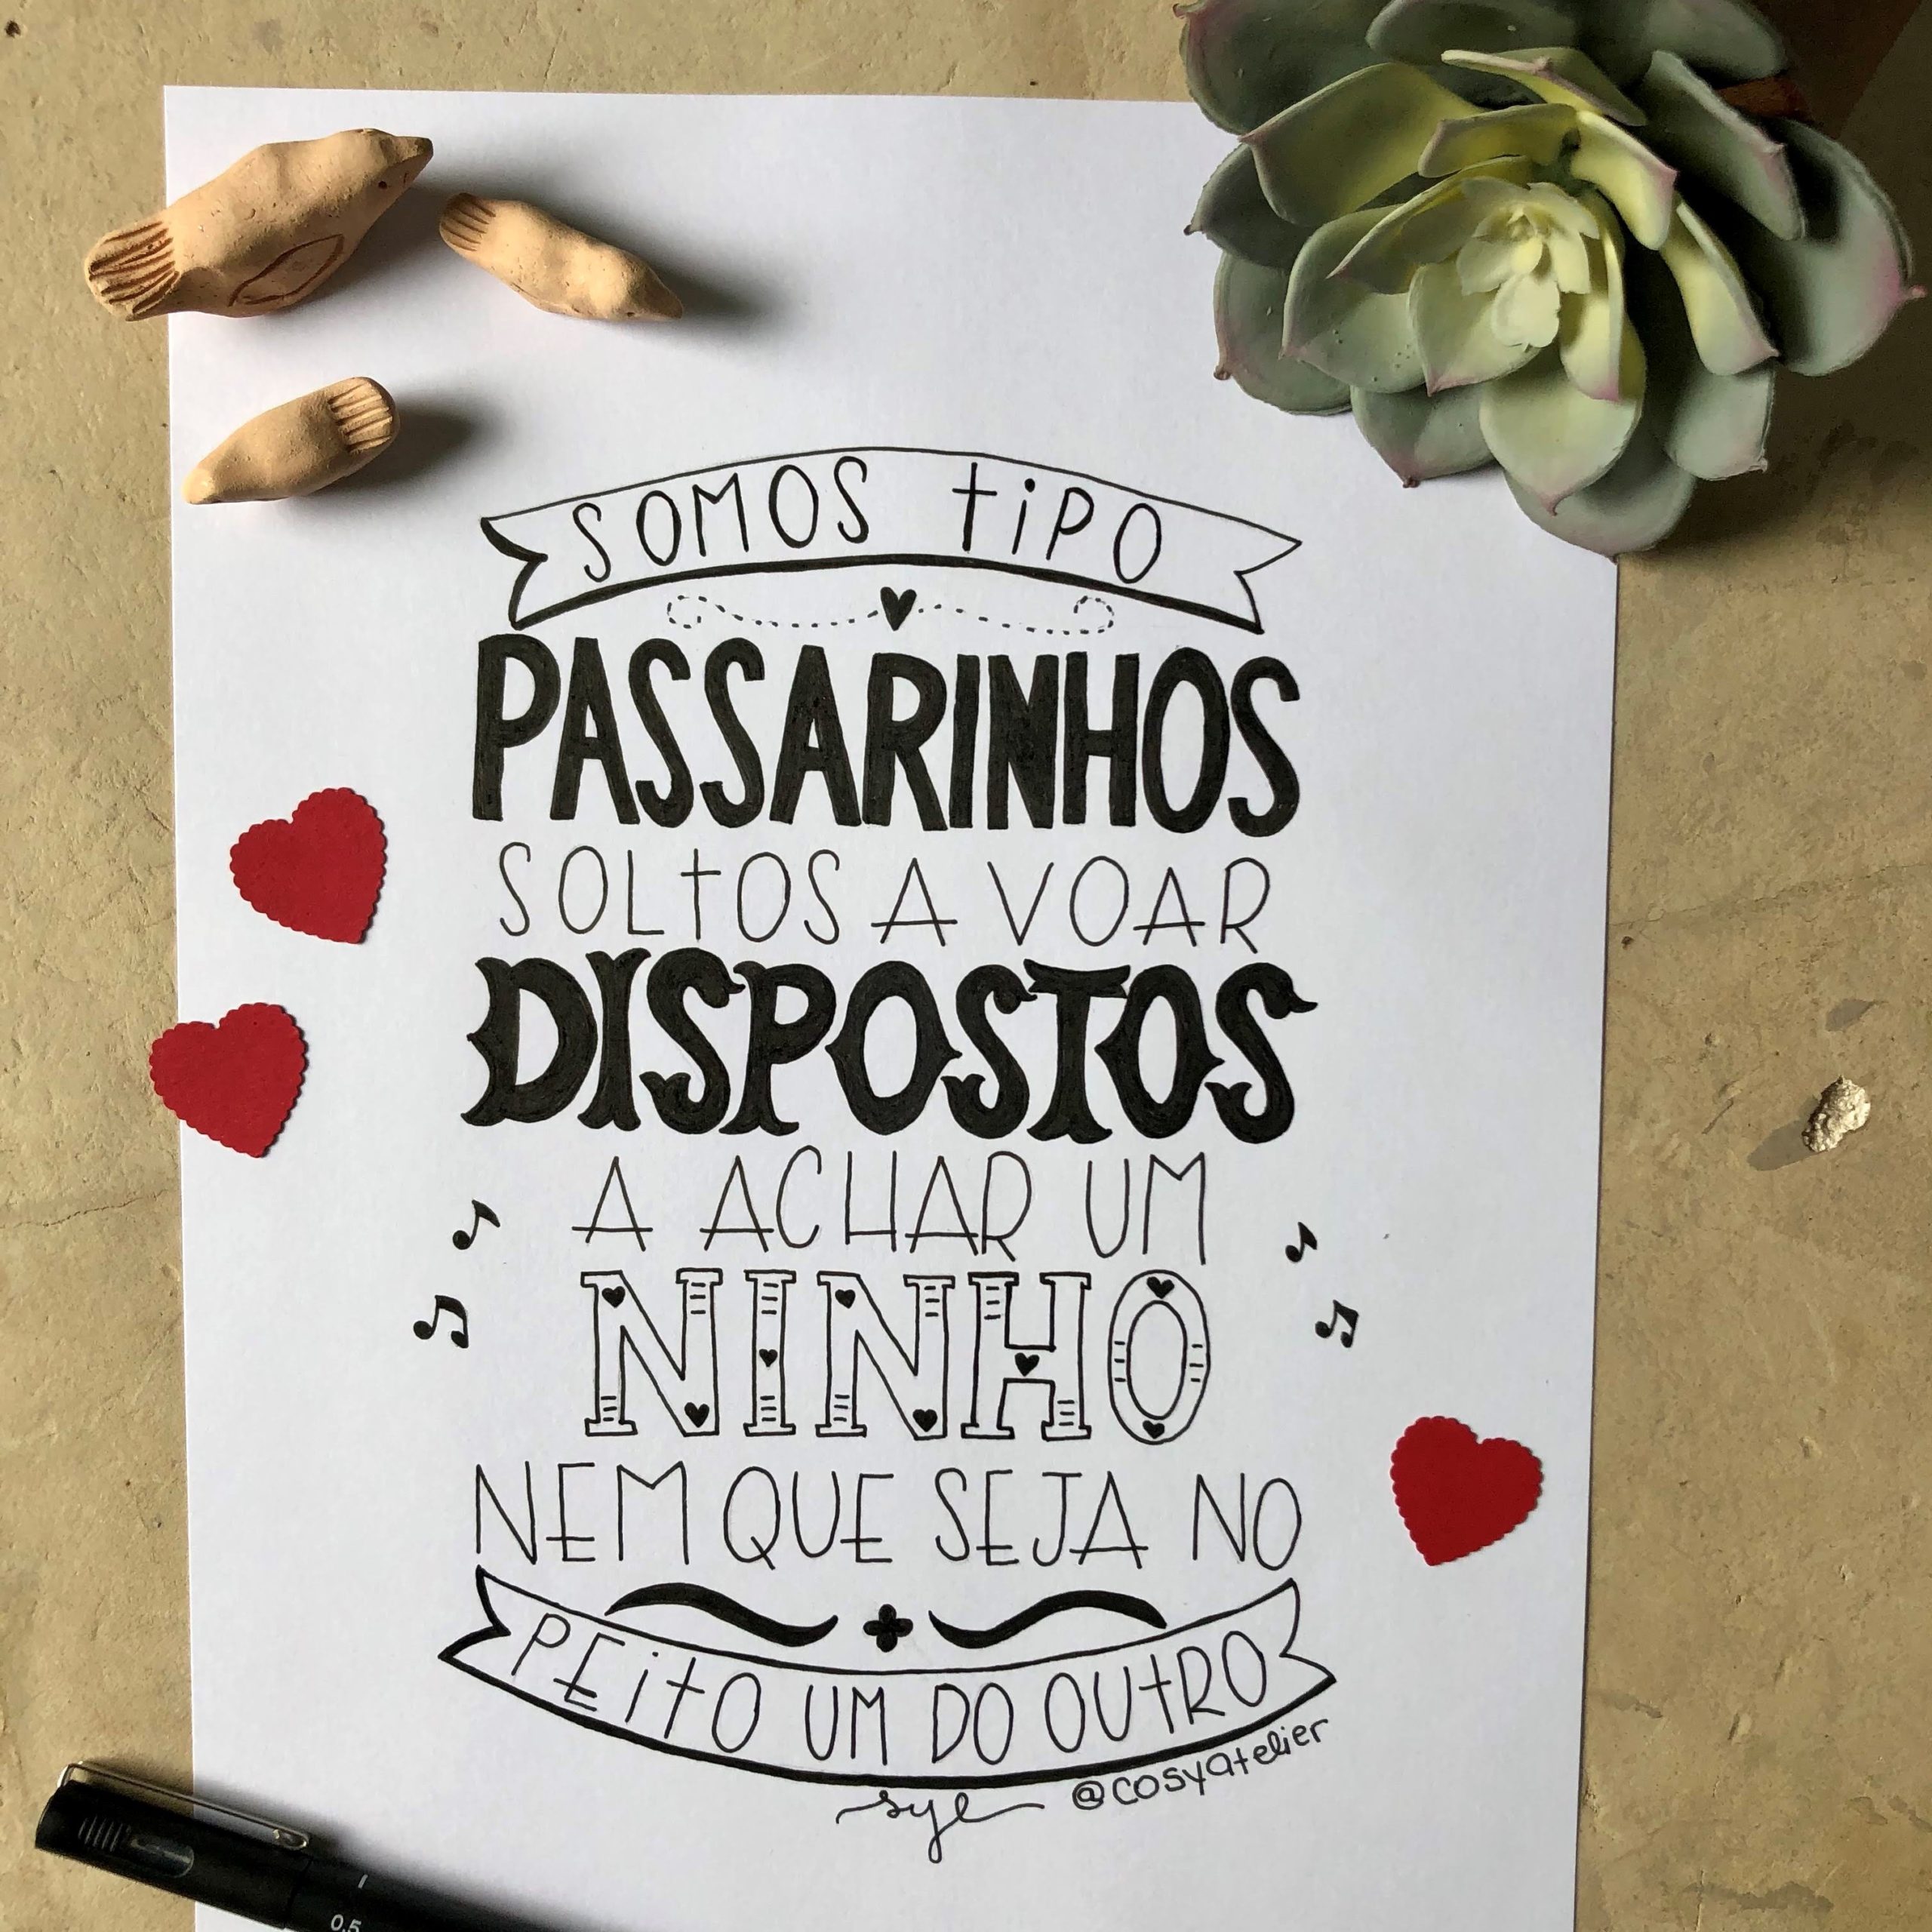 SOMOS tiPO
PASSARINHOS
SOLtOS A VOAR
DISPOSTOS
A ACHAR UM
NINHO
NEM QUE SEJA NO
PEitO UM DO OUtRO
@cosyatelier
sye
0.5